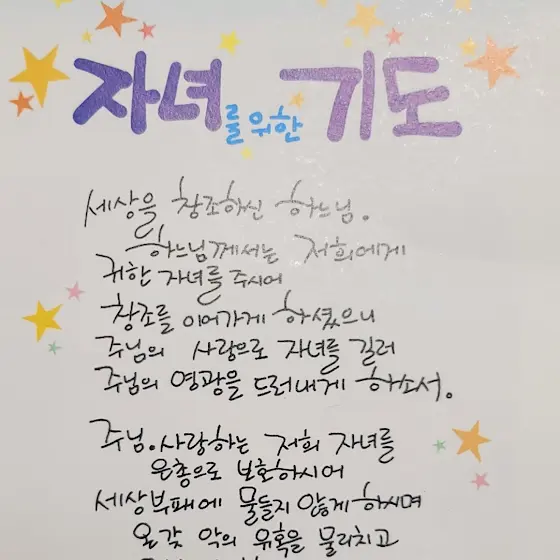 자녀를 위한 기도
세상을 창조하신 하느님.
하느님께서는 저희에게
귀한 자녀를 주시어
창조를 이어가게 하셨으니
주님의 사랑으로 자녀를 길러
주님의 영광을 드러내게 하소서.
주님. 사랑하는 저희 자녀를
은총으로 보호하시어
세상부패에 물들지 않게 하시며
온갖 악의 유혹을 물리치고